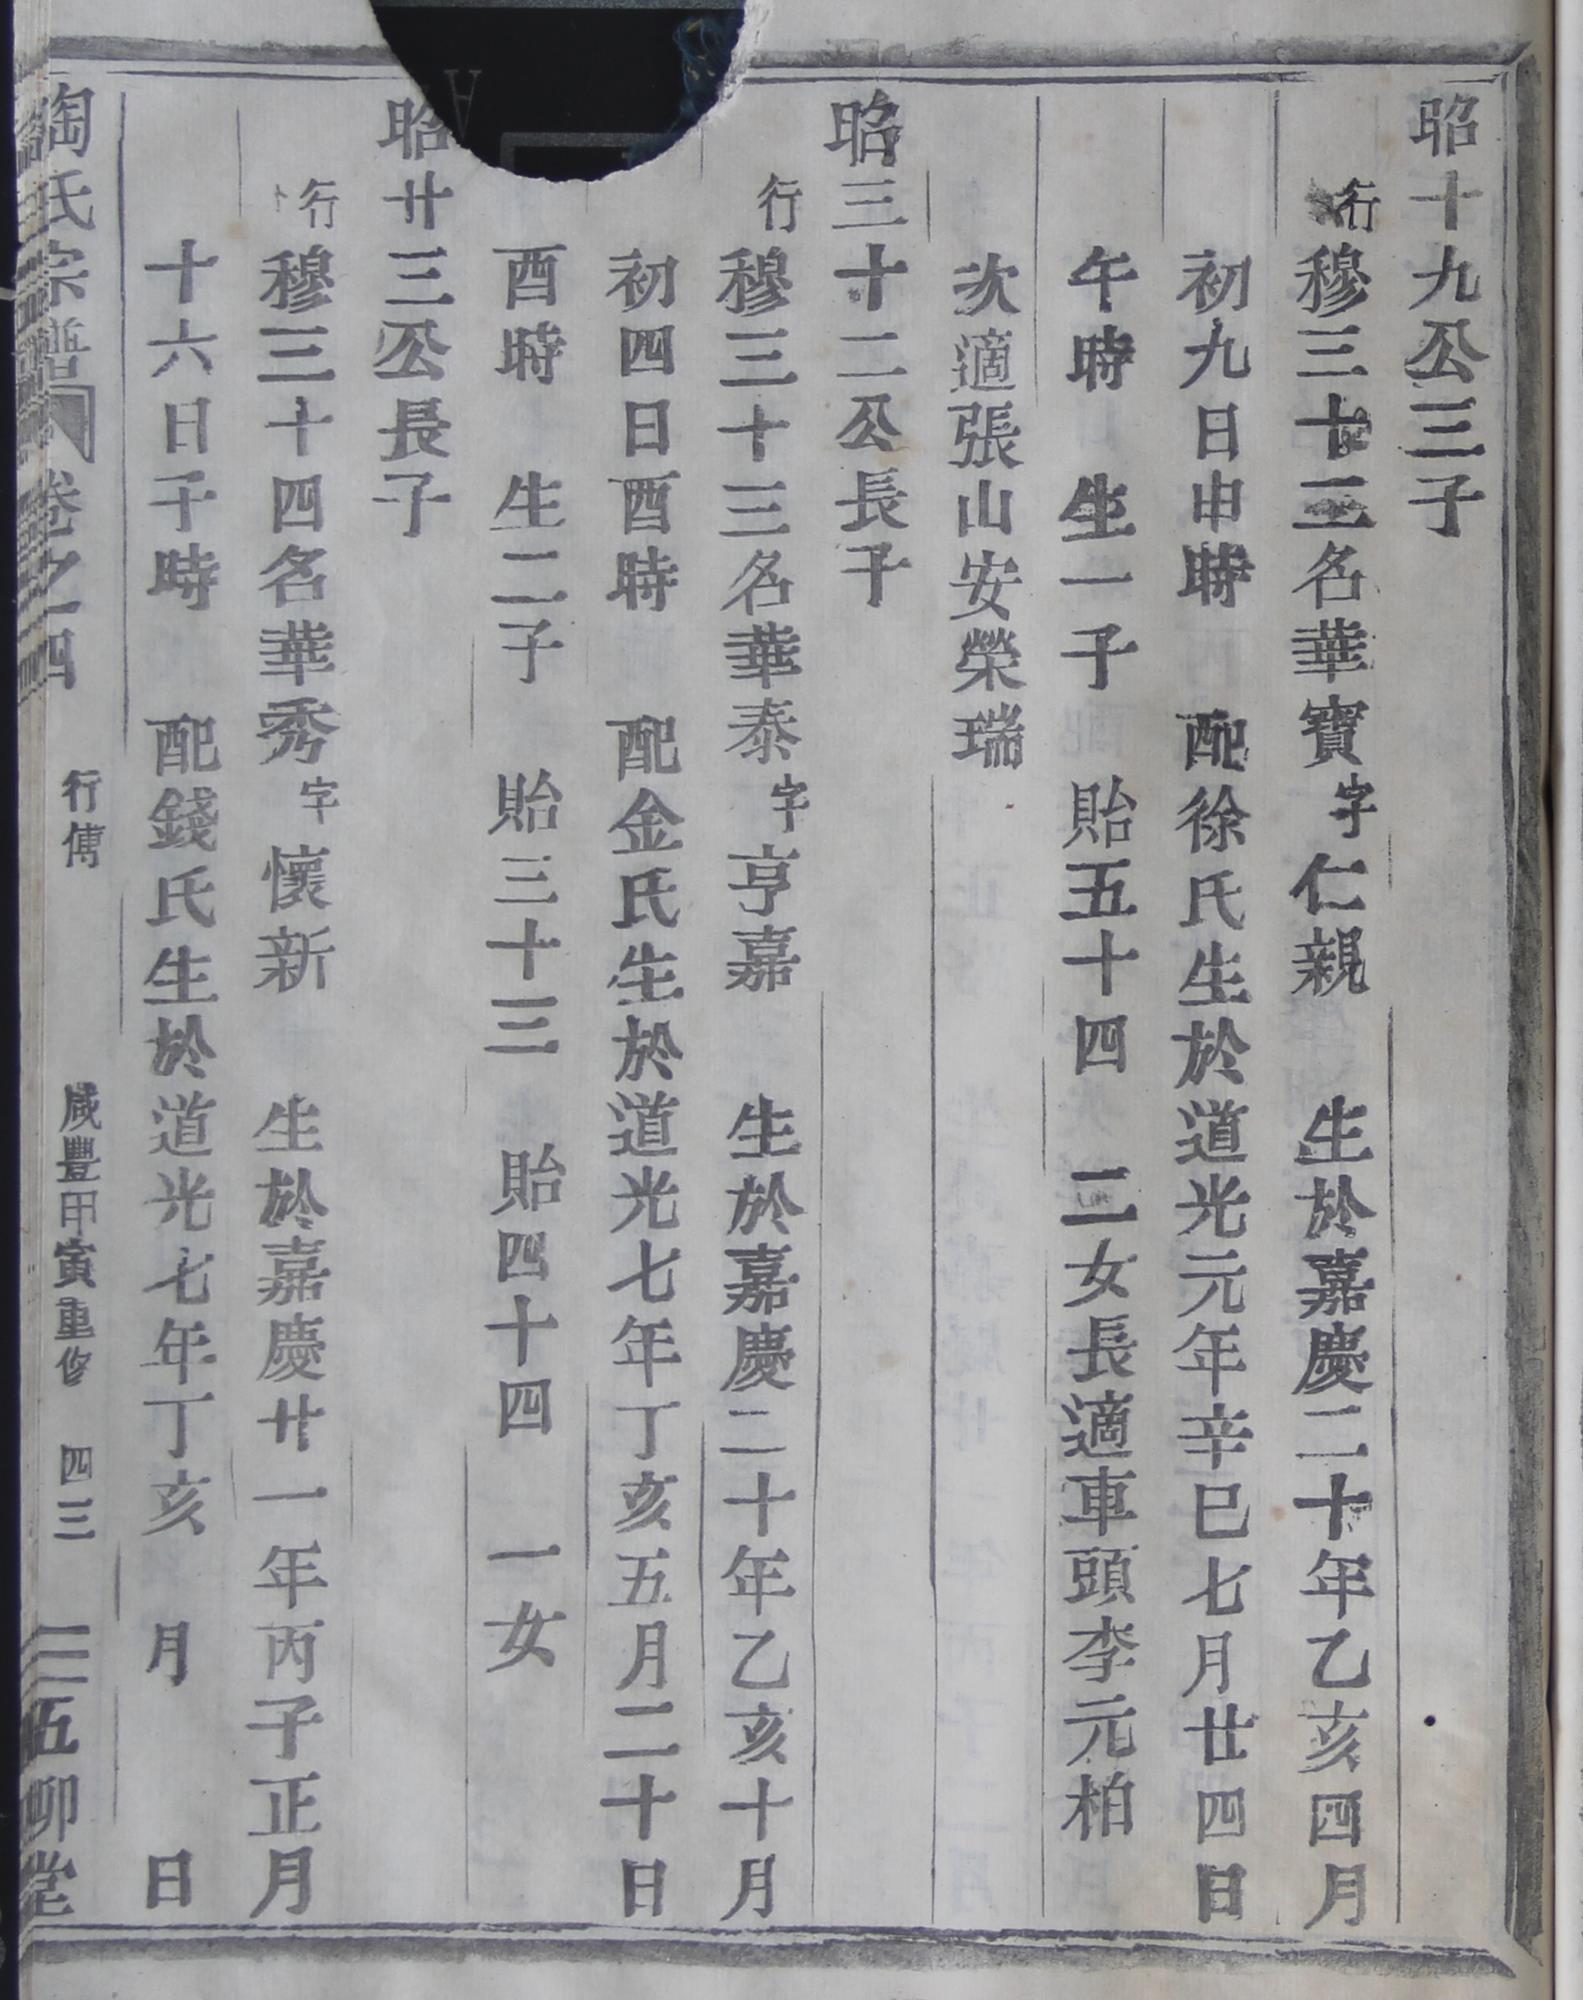 昭十九公三子
行穆三十三名華寶字仁親 生於嘉慶二十年乙亥四月
初九日申時 配徐氏生於道光元年辛巳七月廿四日
午時 生一子 貽五十四 二女長適車頭李元柏
次適張山安榮瑞
昭三十二公長子
行穆三十三名華泰字亨嘉 生於嘉慶二十年乙亥十月
初四日酉時 配金氏生於道光七年丁亥五月二十日
酉時 生二子 貽三十三 貽四十四 一女
昭廿三公長子
行穆三十四名華秀字懷新 生於嘉慶廿一年丙子正月
十六日子時 配錢氏生於道光七年丁亥 月 日
陶氏宗譜 卷之四 行傳 咸豐甲寅重修 四三 五柳堂